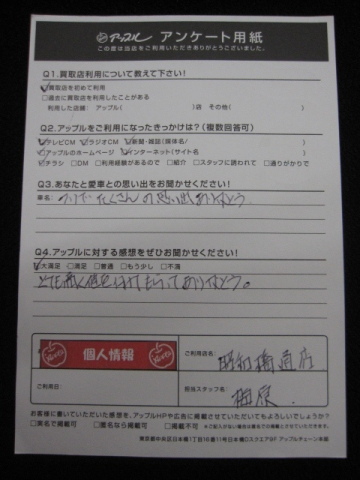 アップル アンケート用紙
この度は当店をご利用いただきありがとうございました。
Q1.買取店利用について教えて下さい!
☑買取店を初めて利用
□過去に買取店を利用したことがある
利用した店舗:アップル( )店 その他( )
Q2.アップルをご利用になったきっかけは?(複数回答可)
☑テレビCM ☑ラジオCM ☑新聞・雑誌(媒体名/ )
☑アップルのホームページ ☑インターネット(サイト名 )
☑チラシ □DM □利用経験があるので □紹介 □スタッフに誘われて □通りがかりで
Q3.あなたと愛車との思い出をお聞かせください!
車名: たくさんの思い出ありがとう。
Q4.アップルに対する感想をぜひお聞かせください!
☑大満足 □満足 □普通 □もう少し □不満
とても高く値をつけてもらってありがとう。
個人情報
ご利用店名:
昭和橋通店
ご利用日:
担当スタッフ名:
お客様に書いていただいた感想を、アップルHPや広告に掲載させていただいてもよろしいでしょうか?
□実名で掲載可 □匿名なら掲載可 □掲載不可 ※ご記入がない場合は匿名での掲載とさせていただきます。
東京都中央区日本橋1丁目16番11号日本橋Dスクエア9F アップルチェーン本部